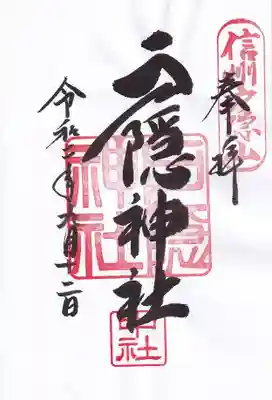 信州戸隠山
奉拝
戸隠神社
戸隠神社
中社
令和二年九月十二日